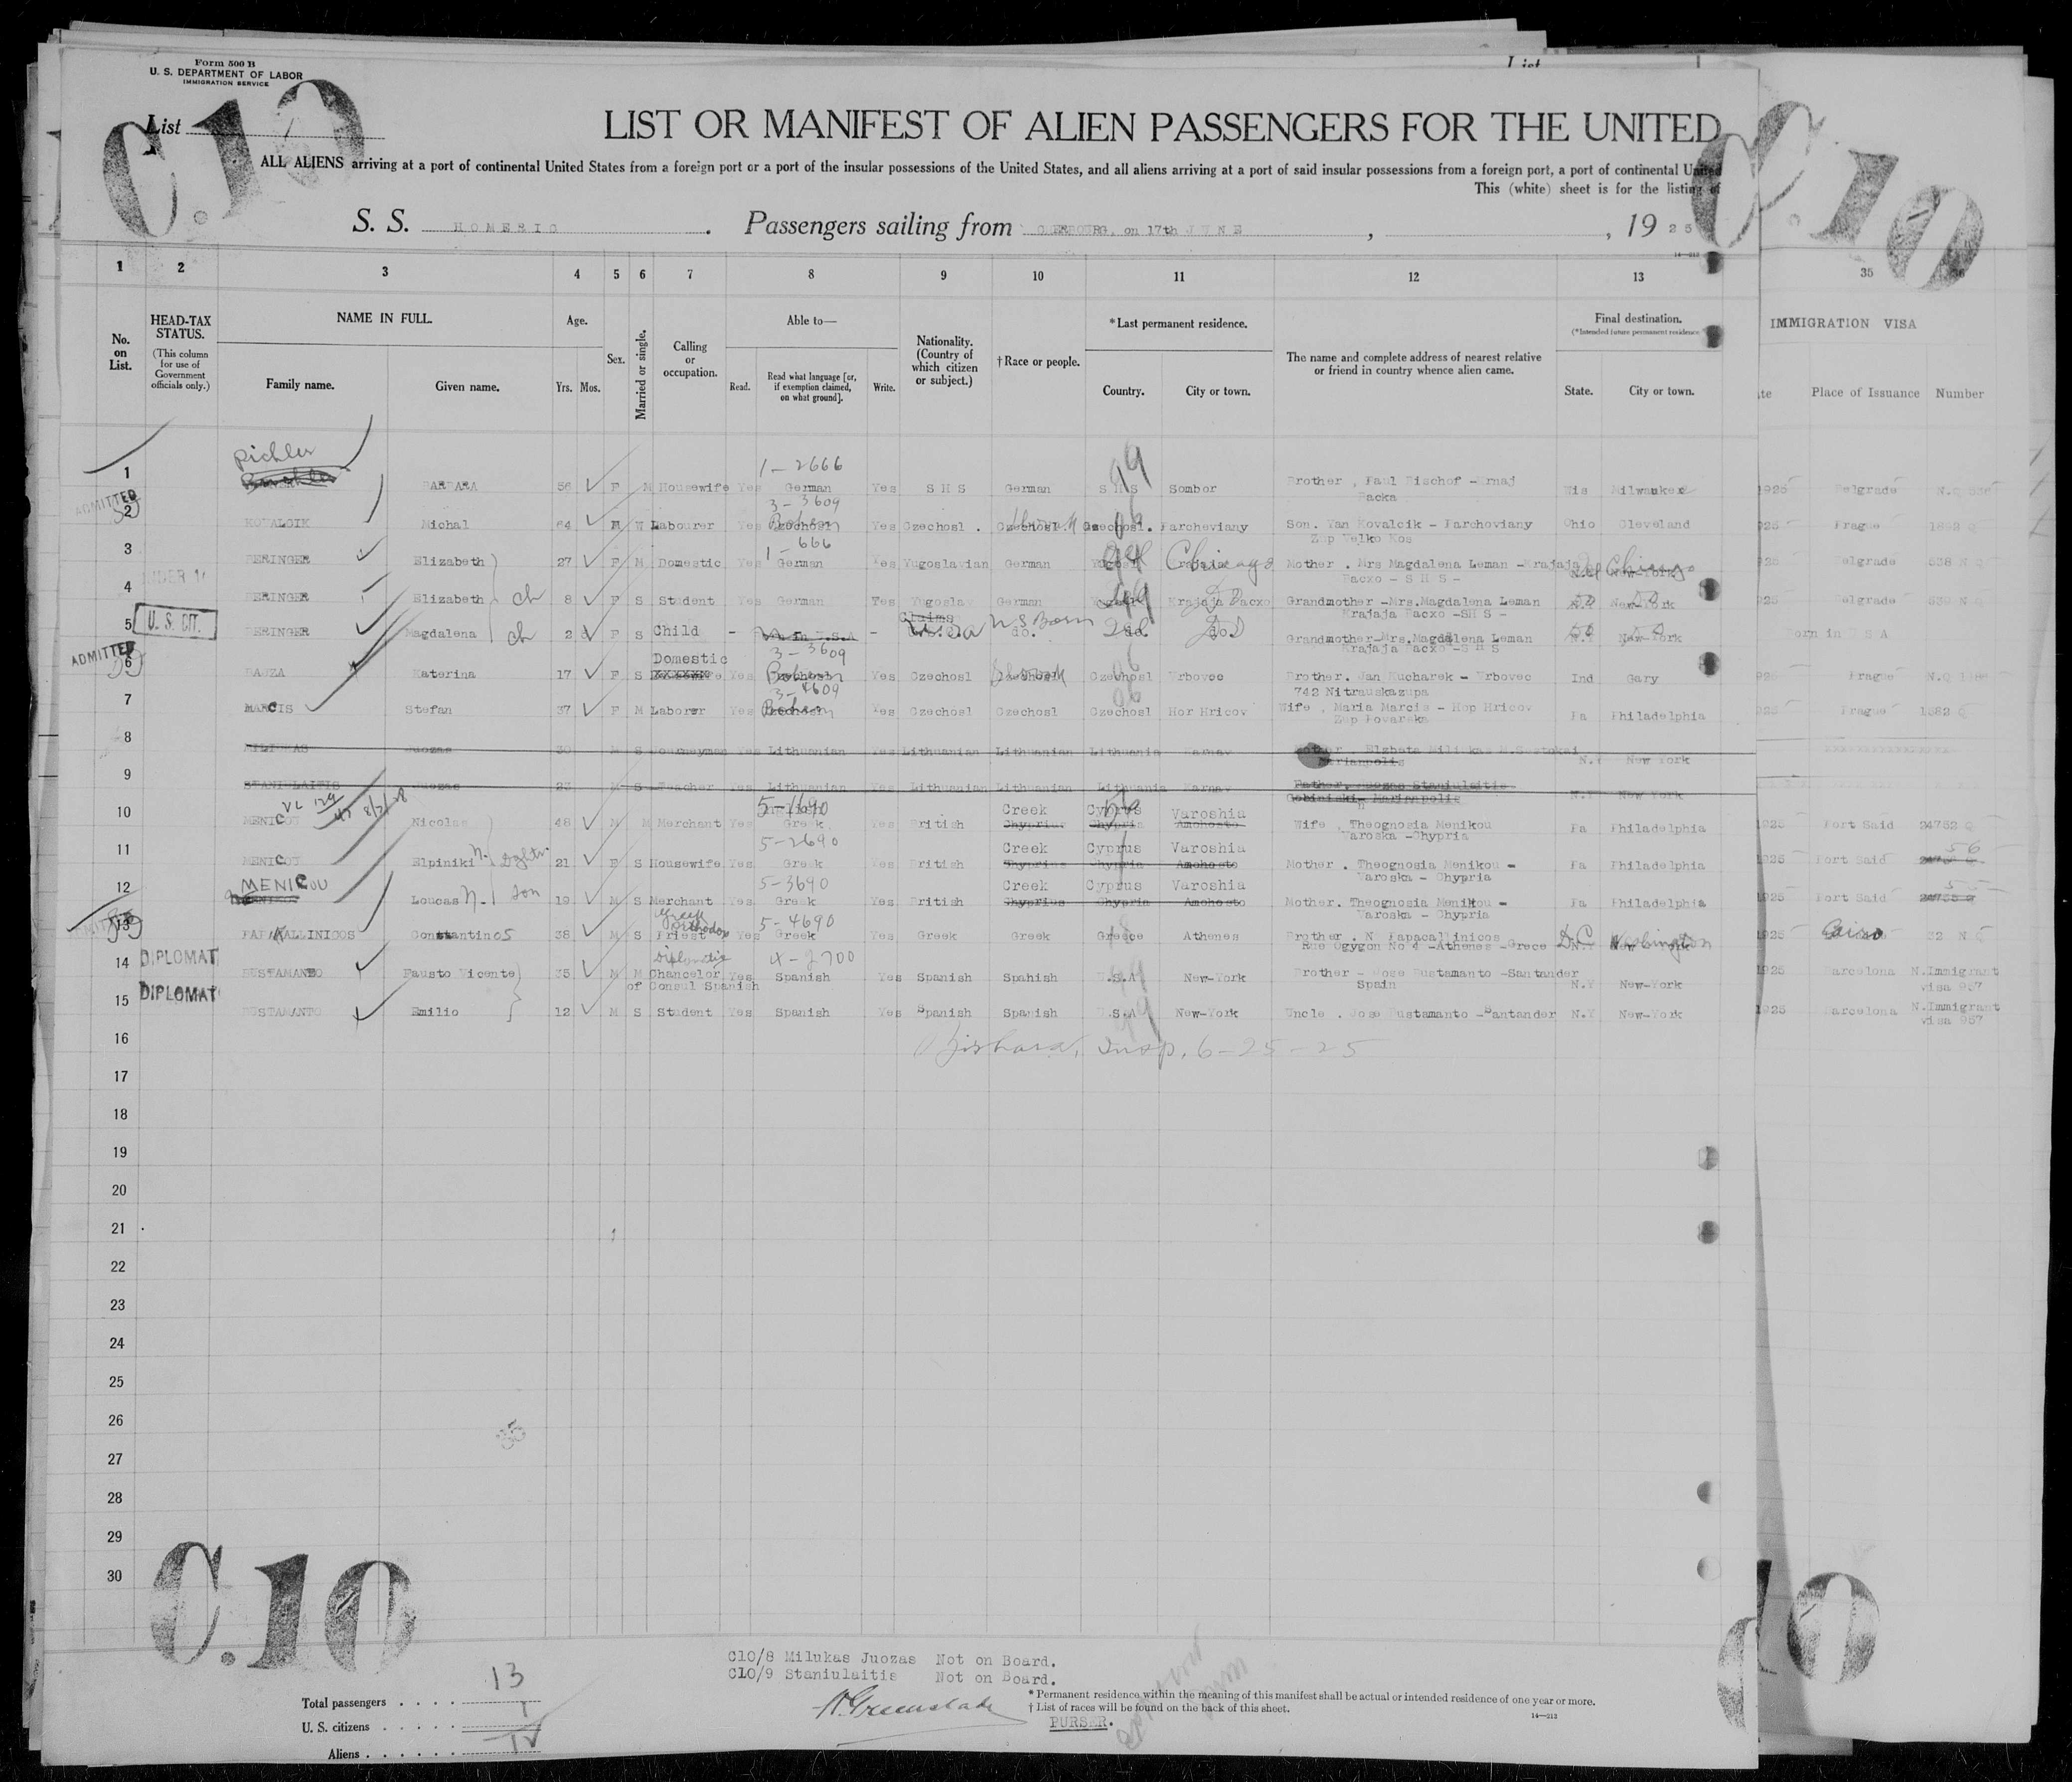 Form 500 B
U. S. DEPARTMENT OF LABOR
IMMIGRATION SERVICE
List
C.10
List 1
LIST OR MANIFEST OF ALIEN PASSENGERS FOR THE UNITED
ALL ALIENS arriving at a port of continental United States from a foreign port or a port of the insular possessions of the United States, and all aliens arriving at a port of said insular possessions from a foreign port, a port of continental United
This (white) sheet is for the listing of
S. S. HOMERIC . Passengers sailing from CHERBOURG, on 17th JUNE , , 19 25
C.10
14—212
1 2 3 4 5 6 7 8 9 10 11 12 13 35 36
No. on List.
HEAD-TAX STATUS.
(This column for use of Government officials only.)
NAME IN FULL.
Family name. Given name.
Age.
Yrs. Mos.
Sex.
Married or single.
Calling or occupation.
Able to—
Read. Read what language [or, if exemption claimed, on what ground]. Write.
Nationality. (Country of which citizen or subject.)
† Race or people.
*Last permanent residence.
Country. City or town.
The name and complete address of nearest relative or friend in country whence alien came.
Final destination.
(*Intended future permanent residence
State. City or town.
IMMIGRATION VISA
Place of Issuance Number
Pichler 1-2666
1 BARBARA 56 F M Housewife Yes German Yes S H S German S H S Sombor Brother , Paul Bischof - Brnaj Wis Milwaukee 1925 Belgrade
Backa
ADMITTED 3-3609
2 KOVALCIK Michal 64 M W Labourer Yes Bohem Yes Czechosl . Czechosl. Parchoviany Son. Yan Kovalcik - Parchoviany Ohio Cleveland 925 Prague 1892 Q
Zup Velko Kos
1-666
3 BERINGER Elizabeth 27 F M Domestic Yes German Yes Yugoslavian German Chicago Mother . Mrs Magdalena Leman - Krajaja Chicago 925 Belgrade 538 N Q
Bacxo - S H S -
UNDER 16
4 BERINGER Elizabeth ch 8 F S Student Yes German Yes Yugoslav German Krajaja Bacxo Grandmother -Mrs.Magdalena Leman N.Y New-York 925 Belgrade 539 N Q
Krajaja Bacxo -SH S -
U. S. CIT. Claims US Born
5 BERINGER Magdalena ch 2 F S Child - Born in U.S.A - do. do. Grandmother-Mrs.Magdalena Leman N.Y New-York Born in U S A
Krajaja Bacxo -S H S
ADMITTED Domestic 3-3609
6 BAUZA Katerina 17 F S Yes Bohem Yes Czechosl Slovak Czechosl Vrbovce Brother. Jan Kucharek - Vrbovec Ind Gary Prague
3-4609 742 Nitranskazupa
7 MARCIS Stefan 37 F M Laborer Yes Bohem Yes Czechosl Czechosl Czechosl Hor Hricov Wife , Maria Marcis - Hop Hricov Pa Philadelphia 925 Prague 1582 Q
Zup Povarska
8 MILUKAS Juozas 30 M S Journeyman Yes Lithuanian Yes Lithuanian Lithuanian Lithuania Mother , Elzbeta Milukas N.Y New York
Marianpolis
9 STANIULAITIS Juozas 23 M S Teacher Yes Lithuanian Yes Lithuanian Lithuanian Lithuania Father. Juozas Staniulaitis N.Y New York
Marianpolis
5-1690 Creek Cyprus Varoshia
10 MENICOU Nicolas 48 M M Merchant Yes Greek Yes British Chyprius Chypria Amohosto Wife , Theognosia Menikou Pa Philadelphia 1925 Port Said 24752 Q
Varoska -Chypria
5-2690 Creek Cyprus Varoshia 56
11 MENICOU Elpiniki N. Dghtr 21 F S Housewife Yes Greek Yes British Chyprius Chypria Amohosto Mother . Theognosia Menikou - Pa Philadelphia 1925 Port Said
Varoska - Chypria
MENICOU 5-3690 Creek Cyprus Varoshia 55
12 Loucas N. son 19 M S Merchant Yes Greek Yes British Chyprius Chypria Amohosto Mother. Theognosia Menikou - Pa Philadelphia 1925 Port Said
Varoska - Chypria
Greek Orthodox 5-4690
13 PAPAKALLINICOS Constantinos 38 M S Priest Yes Greek Yes Greek Greek Greece Athenes Brother . N Papacallinicos D.C Washington 1925 Cairo 32 N Q
Rue Ogygon No 4 -Athenes -Grece
DIPLOMAT Diplomatic 4-2700
14 BUSTAMANTO Fausto Vicente 35 M M Chancelor Yes Spanish Yes Spanish Spahish U.S.A New-York Brother - Jose Bustamanto -Santander N.Y New-York 1925 Barcelona N.Immigrant
of Consul Spanish Spain visa 957
DIPLOMAT
15 BUSTAMANTO Emilio 12 M S Student Yes Spanish Yes Spanish Spanish U.S.A New-York Uncle . Jose Bustamanto -Santander N.Y New-York 1925 Barcelona N.Immigrant
visa 957
16 Bishara, Insp. 6-25-25
17
18
19
20
21
22
23
24
25
26
27
28
29
30
C.10
C10/8 Milukas Juozas Not on Board.
C10/9 Staniulaitis Not on Board.
Total passengers . . . . 13
U. S. citizens . . . . . 1
Aliens . . . . . . 12
A. Greenslade
PURSER.
* Permanent residence within the meaning of this manifest shall be actual or intended residence of one year or more.
† List of races will be found on the back of this sheet.
14—212